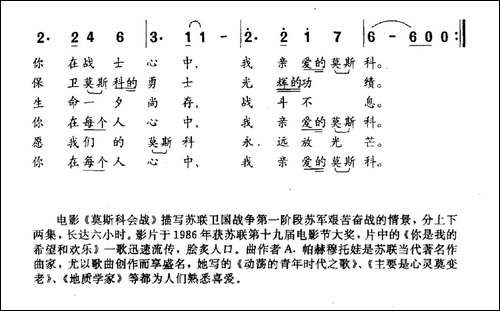 2· 2 4 6 3· 1 1 - 2· 2 1 7 6 - 6 0 0 :‖
你 在 战 士 心 中， 我 亲 爱的 莫斯 科。
保 卫 莫斯 科的 勇 士 光 辉的 功 绩。
生 命 一 夕 尚 存， 战 斗 不 息。
你 在 每个 人 心 中， 我 亲 爱的 莫斯 科。
愿 我 们的 莫斯 科 永 远 放 光 芒。
你 在 每个 人 心 中， 我 亲 爱的 莫斯 科。
电影《莫斯科会战》描写苏联卫国战争第一阶段苏军艰苦奋战的情景，分上下
两集，长达六小时。影片于1986年获苏联第十九届电影节大奖，片中的《你是我的
希望和欢乐》一歌迅速流传，脍炙人口。曲作者A．帕赫穆托娃是苏联当代著名作
曲家，尤以歌曲创作而享盛名，她写的《动荡的青年时代之歌》、《主要是心灵莫变
老》、《地质学家》等都为人们熟悉喜爱。